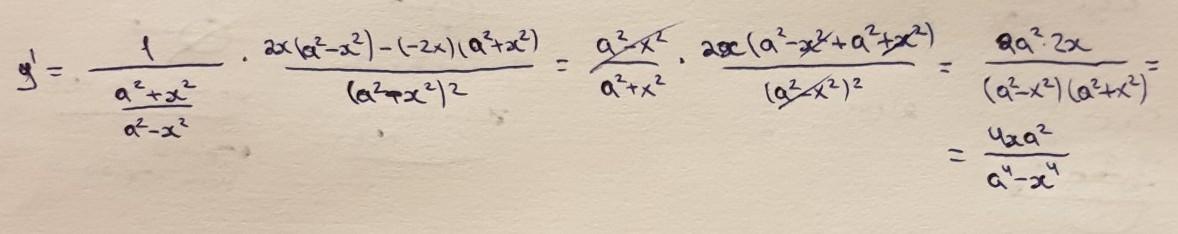 y' = 1/((a²+x²)/(a²-x²)) · (2x(a²-x²)-(-2x)(a²+x²))/(a²-x²)² = (a²-x²)/(a²+x²) · (2x(a²-x²+a²+x²))/(a²-x²)² = (2a²·2x)/((a²-x²)(a²+x²)) =
= 4xa²/(a⁴-x⁴)